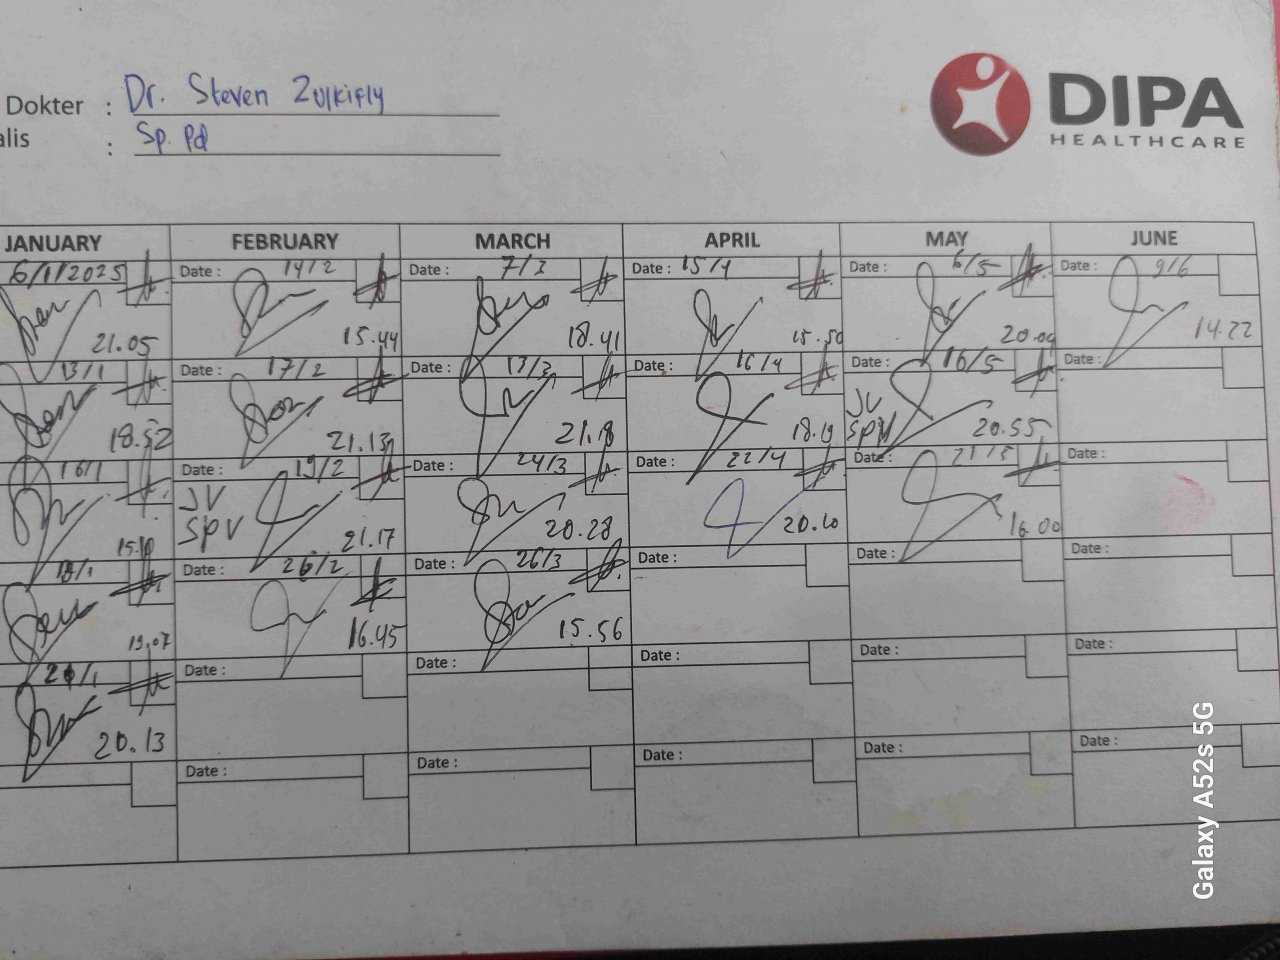 Dokter : Dr. Steven Zulkifly
alis : Sp. Pd
DIPA
HEALTHCARE
JANUARY FEBRUARY MARCH APRIL MAY JUNE
6/1/2025 Date : 14/2 Date : 7/3 Date : 15/4 Date : 6/5 Date : 9/6
21.05 15.44 18.41 15.50 20.09 14.22
13/1 Date : 17/2 Date : 13/3 Date : 16/4 Date : 16/5 Date :
18.52 21.13 21.18 18.19 JV SPV 20.55
16/1 Date : 19/2 Date : 24/3 Date : 22/4 Date : 21/5 Date :
JV SPV 21.17 20.28 20.10 16.00
Date : 26/2 Date : 26/3 Date : Date : Date :
19.07 16.45 15.56
Date : Date : Date : Date : Date :
20.13
Date : Date : Date : Date : Date :
Galaxy A52s 5G